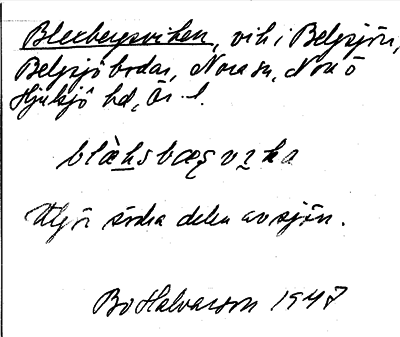 Blexbergsviken, vik i Belgsjön,
Belgsjöbodar, Nora sn, Nora o
Hjulsjö hd, Ör. l.
blæ̀ksbærgvika
Utgör södra delen av sjön.
Bo Halvarson 1947